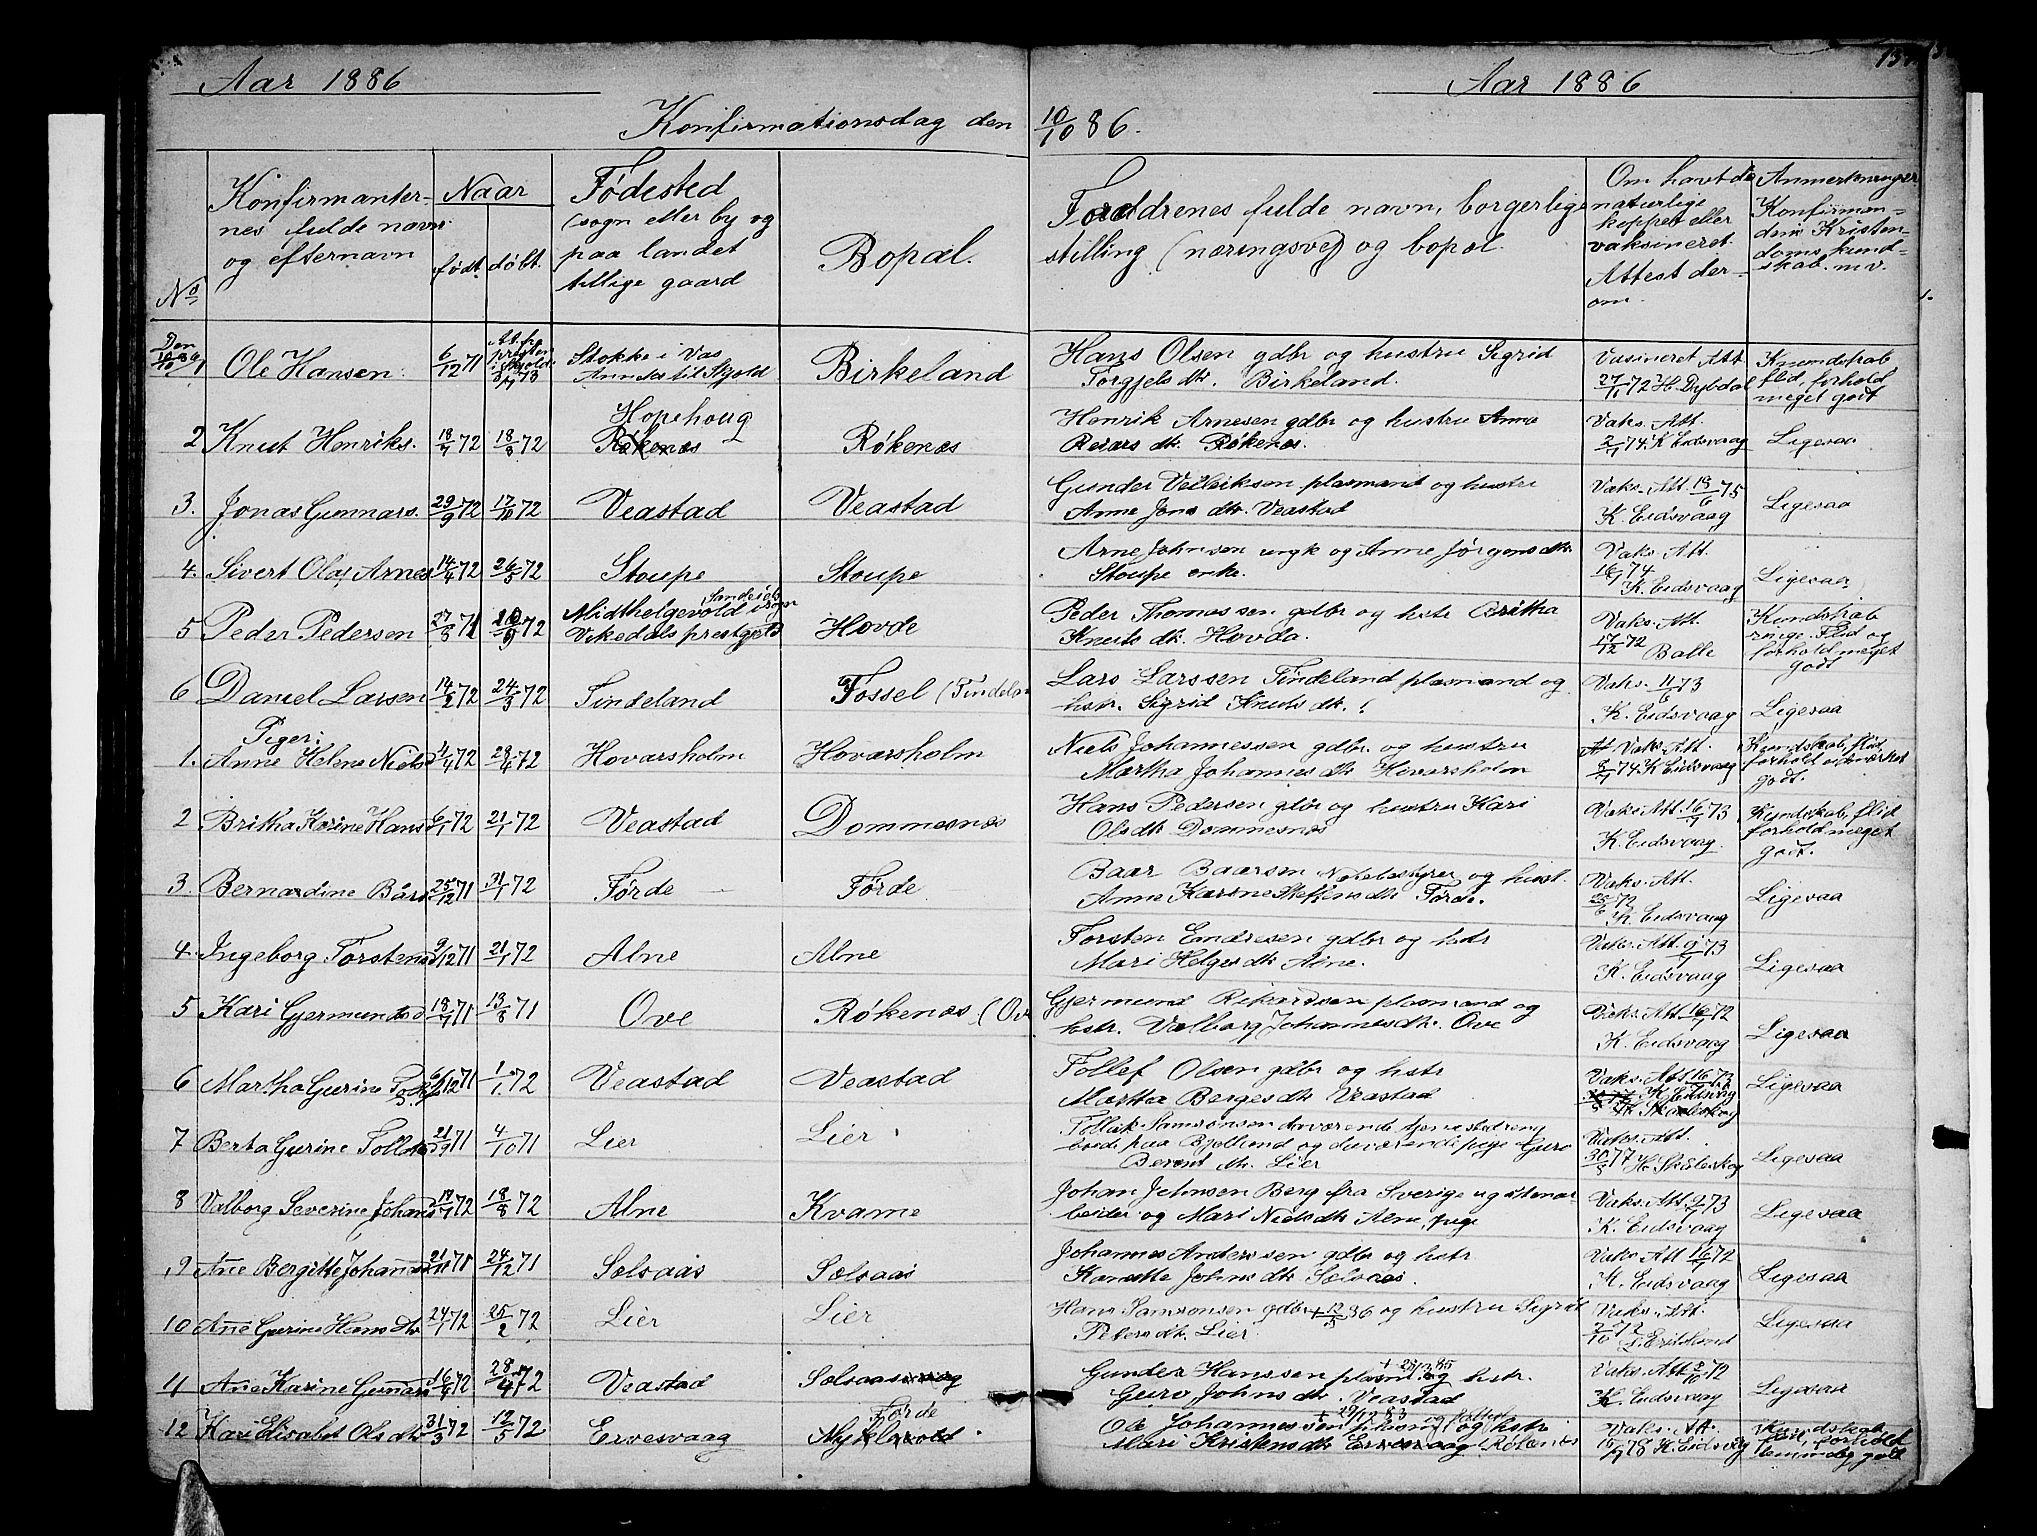 Aar 1886
Aar 1886
Konfirmationsdag den 10/10 86.
No
Konfirmanter-
nes fulde navn
og efternavn
Naar
født
døbt
Fødested
(sogn eller by og
paa landet
tillige gaard
Bopæl.
Forældrenes fulde navn, borgerlige
stilling (næringsvei) og bopæl.
Om havt de
naturlige
kopper eller
vaksineret.
Attest der-
om.
Anmerkninger
Konfirman-
dens Kristen-
doms kund-
skab. m.v.
Den
1 Ole Hansen 6/12 71
Stokke i Vas
Skjold
Birkeland
Hans Olsen gdbr og hustru Sigrid
Torgjels dtr. Birkeland.
Vasineret Att
27/ 72 H. Dybdal
Kundskab
flid, forhold
meget godt
2 Knut Henriks. 18/7 72 18/8 72
Hopehoug
Røkenæs
Røkenæs
Henrik Arnesen gdbr og hustru Anna
dtr. Røkenæs.
Vaks. Att.
2/ 74 K Eidsvaag
Ligesaa
3. Jonas Gunnars. 29/9 72 17/10 72
Veastad
Veastad
Gunder plasmand og hustru
Anne Jons dtr. Veastad
Vaks. Att. 75
K. Eidsvaag
Ligesaa
4. Sivert Olaj Arnes 14/4 72 26/5 72
Stoupe
Stoupe
Arne Johnsen ungk og Anne Jørgens dtr.
Stoupe enke.
Vaks. Att.
16/ 74
K. Eidsvaag
Ligesaa
5 Peder Pedersen 27/8 71 72
Midthelgevold i Sandeids sogn
Vikedals prestgjeld
Hovde
Peder Thomessen gdbr og hstr Britha
Knuts dtr. Hovda.
Vaks. Att.
17/12 72
Balle
Kundskab
Flid og
forhold meget
godt
6 Daniel Larsen 14/2 72 24/3 72
Tindeland
Fossel (Tindelan
Lars Larssen Tindeland plasmand og
hstr. Sigrid Knuts dtr.
Vaks. 11/6 73
K. Eidsvaag
Ligesaa
Piger:
1. Anne Helene Niels 1/4 72 28/4 72
Hovarsholm
Hovarsholm
Niels Johannessen gdbr. og hustru
Martha Johannes dtr Hovarsholm
Vaks. Att.
8/ 74 K Eidsvaag
Kundskab, flid,
forhold udmerket
godt.
2 Britha Karine Hans 6/1 72 21/1 72
Veastad
Dommesnes
Hans Pedersen gbr og hustru Kari
Ols dtr Dommesnes
Vaks. Att. 16/ 73
K. Eidsvaag.
Kundskab, flid
forhold meget
godt.
3. Bernardine Bårs 25/12 71 31/1 72
Førde
Førde
Baar Baarsen og hust.
Anne Karine dtr Førde.
Vaks. Att.
72
K. Eidsvaag
Ligesaa
4. Ingeborg Torstens 9/12 71 21/1 72
Alne
Alne
Torsten Endresen gdbr og hstr
Mari Helges dtr Alne.
Vaks. Att. 73
K. Eidsvaag
Ligesaa
5 Kari Gjermunds d 18/7 71 13/8 71
Ove
Røkenæs (Ov
Gjermund Rikardsen plasmand og
hstr. Valborg Johannes dtr. Ove
Vaks. Att. 16/ 72
K. Eidsvaag
Ligesaa
6 Martha Gurine 6/12 71 1/1 72
Veastad
Veastad
Tollef Olsen gdbr og hstr
Martha Berges dtr Veastad
Vaks. Att. 16/
K Eidsvåg
Ligesaa
7 Berta Gurine 21/9 71 4/10 71
Lier
Lier
Tollak Samsonsen daværende tjenestedreng
paa og daværende pige Guro
Berent dtr. Lier
Vaks. Att.
30/8 77
Ligesaa
8 Valborg Severine Johans 72 18/8 72
Alne
Kvame
Johan Johnsen Berg fra Sverige ug stenar-
beider og Mari Niels dtr Alne, pige
Vaks. Att. 2/ 73
K. Eidsvaag
Ligesaa
9 Ane Bergitte Johanes 21/11 71 24/12 71
Solsaas
Solsaas
Johannes Andersen gdbr og hstr
Johns dtr. Solsaas.
Vaks. Att 16/ 72
K. Eidsvaag
Ligesaa
10 Ane Gurine Hans dtr 24/1 72 25/2 72
Lier
Lier
Hans Samsonsen gdbr + 12/5 36 og hustru Sigrid
Peters dtr. Lier
Vaks. Att.
2/10 72
Ligesaa
11 Ane Karine Gunars 16/4 72 28/4 72
Veastad
Gunder Hanssen plasm. + 85 og hstr.
Guro Johns dtr. Veastad
Vaks. Att 72
K. Eidsvaag
Ligesaa
12 Kari Elisabet Ols dtr 31/3 72 12/5 72
Ervesvaag
Førde
Ole Johannessen og hstr
Mari Kristens dtr Ervesvaag
Vaks. Att.
78 K. Eidsvåg
Kundskab,
flid, forhold
temmelig godt